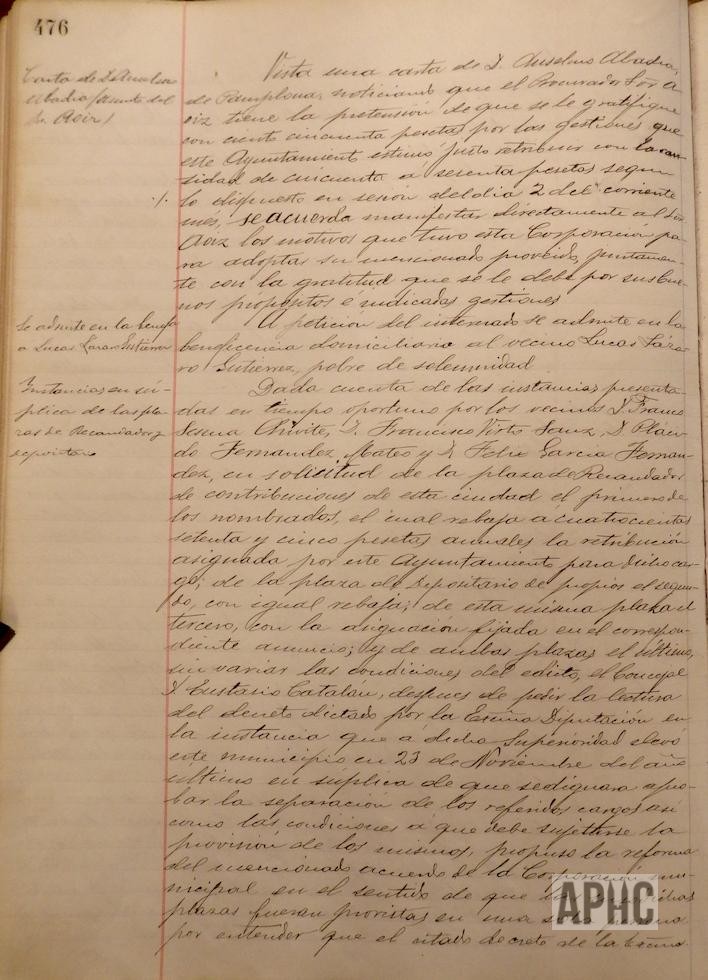 476
Carta de D. Anselmo
Abadia (asunto del
Sr. Aoiz)
Vista una carta de D. Anselmo Abadia,
de Pamplona, noticiando que el Procurador Sor A
oiz tiene la pretensión de que se le gratifique
con ciento cincuenta pesetas por las gestiones que
este Ayuntamiento estimó justo retribuir con la can-
tidad de cincuenta a sesenta pesetas segun
lo dispuesto en sesión del dia 2 del corriente
més, se acuerda manifestar directamente al Sor
Aoiz los motivos que tuvo esta Corporación pa-
ra adoptar su mencionado proveido, juntamen-
te con la gratitud que se le debe por sus bue-
nos propósitos e indicadas gestiones
Se admite en la benefa
a Lucas Lázaro Gutierrez
A petición del interesado se admite en la
beneficencia domiciliaria al vecino Lucas Láza-
ro Gutierrez, pobre de solemnidad
Instancias en sú-
plica de las pla-
zas de Recaudador y
depositario
Dada cuenta de las instancias presenta-
das en tiempo oportuno por los vecinos D. Franco
Sesma Chivite, D. Francisco Virto Sanz, D. Pláci-
do Fernandez Mateo y D. Felix Garcia Fernan-
dez, en solicitud de la plaza de Recaudador
de contribuciones de esta ciudad el primero de
los nombrados, el cual rebaja a cuatrocientas
setenta y cinco pesetas anuales la retribución
asignada por este Ayuntamiento para dicho car-
go; de la plaza de Depositario de propios el segun-
do, con igual rebaja; de esta misma plaza el
tercero, con la asignación fijada en el correspon-
diente anuncio; y de ambas plazas el último,
sin variar las condiciones del edicto, el Concejal
D. Eustasio Catalán, despues de pedir la lectura
del decreto dictado por la Excma Diputación en
la instancia que a dicha Superioridad elevó
este municipio en 23 de Noviembre del año
último en súplica de que se dignara apro-
bar la separación de los referidos cargos asi
como las condiciones a que debe sujetarse la
provisión de los mismos, propuso la reforma
del mencionado acuerdo de la Corporación mu-
nicipal en el sentido de que las
plazas fueran provistas en una sola
por entender que el citado decreto de la Excma
APHC